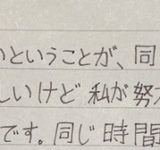 いということが、同
しいけど 私が努
です。同じ時間